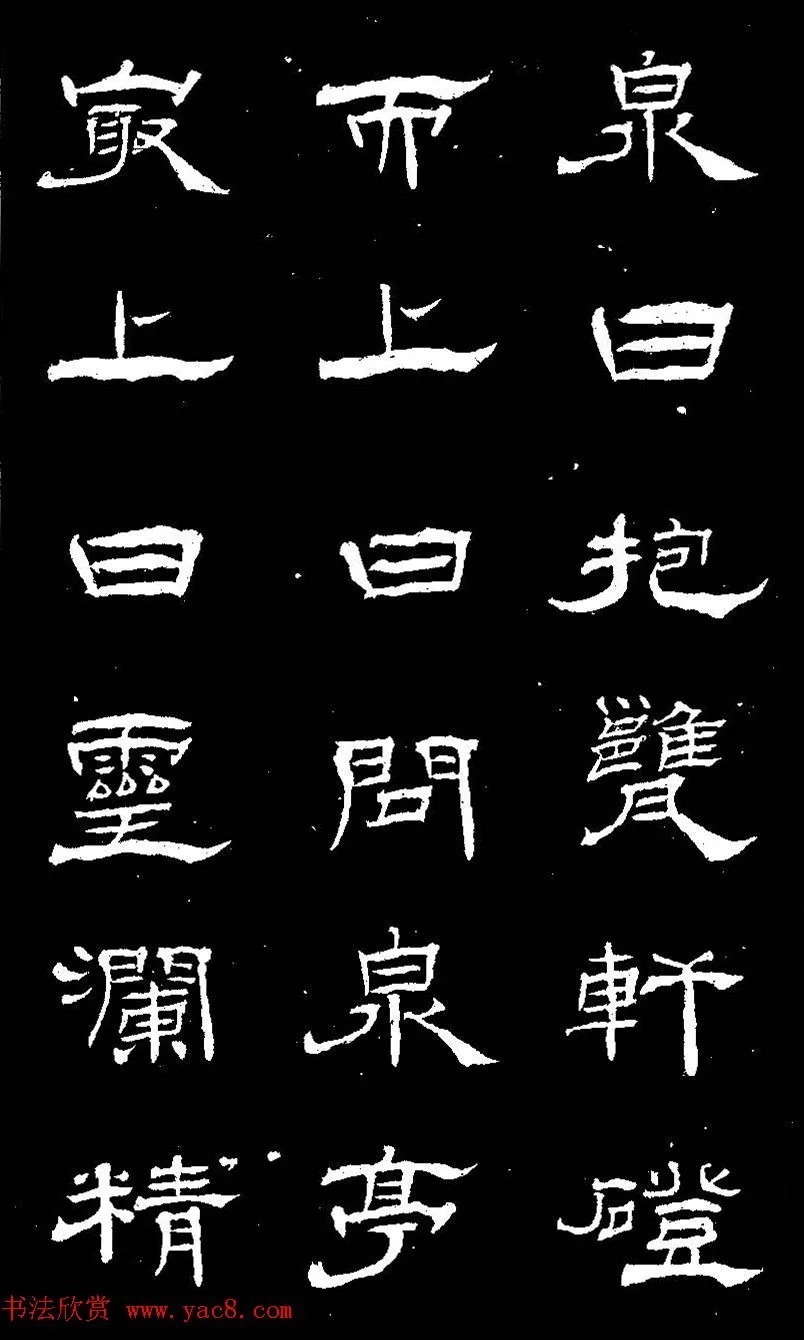 泉曰抱甕軒磴
而上曰問泉亭
最上曰靈瀾精
书法欣赏 www.yac8.com